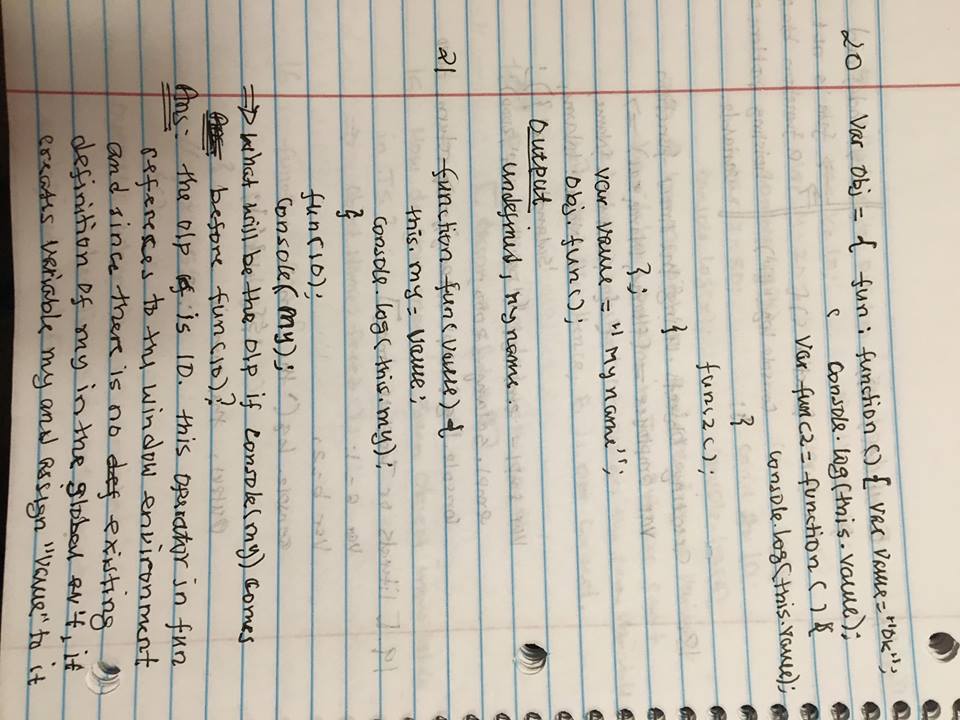 20 Var obj = { fun : function () { var value = "OK";
( console.log(this.value);
var func2 = function () {
console.log(this.value);
}
func2();
}
};
var value = "My name";
obj.fun();
Output
undefined, My name.
21 function fun(value) {
this.my = value;
console.log(this.my);
}
fun(10);
console(my);
=> What will be the O/p if console(my) comes
before fun(10)?
Ans:- the O/p is is 10. this operator in fun
referees to the window environment
and since there is no def existing
definition of my in the global env't, it
creates variable my and assign "value" to it